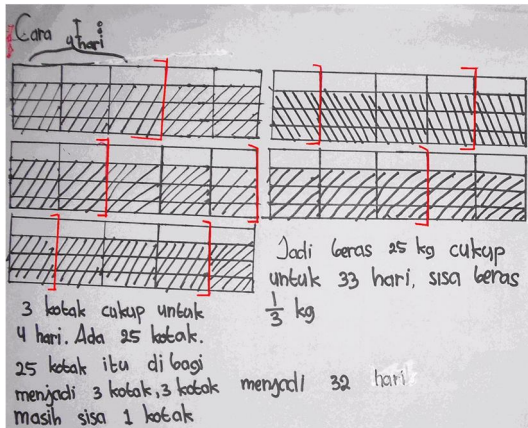 Cara I:
4 hari
Jadi beras 25 kg cukup
untuk 33 hari, sisa beras
1/3 kg
3 kotak cukup untuk
4 hari. Ada 25 kotak.
25 kotak itu di bagi
menjadi 3 kotak, 3 kotak menjadi 32 hari
masih sisa 1 kotak